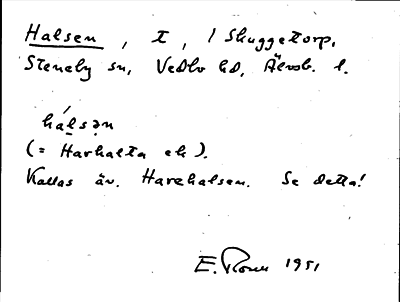 Halsen, t, i Skuggetorp,
Steneby sn, Vedbo hd, Älvsb. l.
hálsən
(= Harhalta ek).
Kallas äv. Harehalsen. Se detta!
E. Rosen 1951